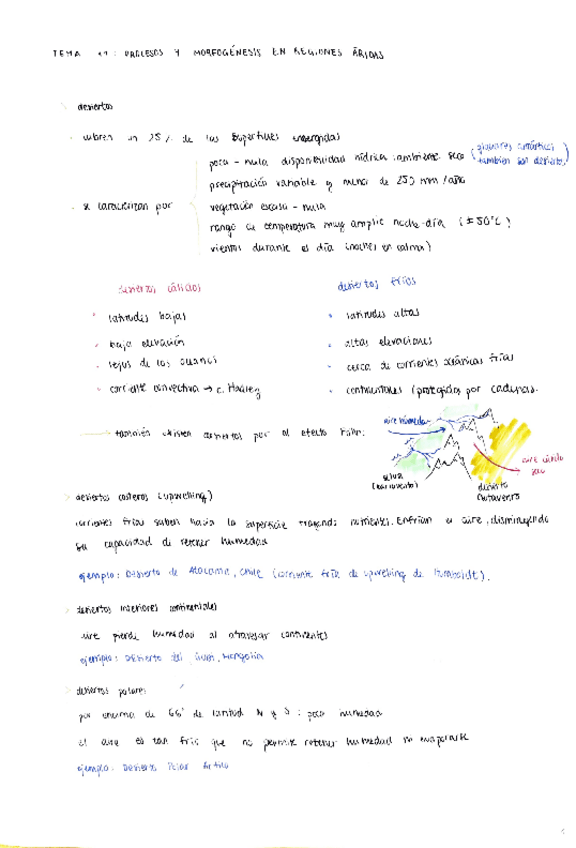 TEMA 11: PROCESOS Y MORFOGÉNESIS EN REGIONES ÁRIDAS
desiertos
cubren un 25% de las superficies emergidas
poca - nula disponibilidad hídrica: ambiente seco (glaciares antárticos también son desiertos)
precipitación variable y menor de 250 mm/año
se caracterizan por
vegetación escasa - nula
rango de temperatura muy amplio noche-día (±50°C)
vientos durante el día (noches en calma)
desiertos cálidos
desiertos fríos
latitudes bajas
latitudes altas
baja elevación
altas elevaciones
lejos de los océanos
cerca de corrientes oceánicas frías
corriente convectiva → c. Hadley
continentales (protegidos por cadenas.
también existen desiertos por el efecto Föhn:
aire húmedo
aire cálido seco
selva (barlovento)
desierto sotavento
desiertos costeros (upwelling)
corrientes frías suben hacia la superficie trayendo nutrientes. Enfrían el aire, disminuyendo
su capacidad de retener humedad
ejemplo: Desierto de Atacama, Chile (corriente fría de upwelling de Humboldt).
desiertos interiores continentales
aire pierde humedad al atravesar continentes
ejemplo: Desierto del Gobi, Mongolia
desiertos polares
por encima de 66° de latitud N y S: poca humedad
el aire es tan frío que no permite retener humedad ni evaporarse
ejemplo: Desierto Polar Ártico